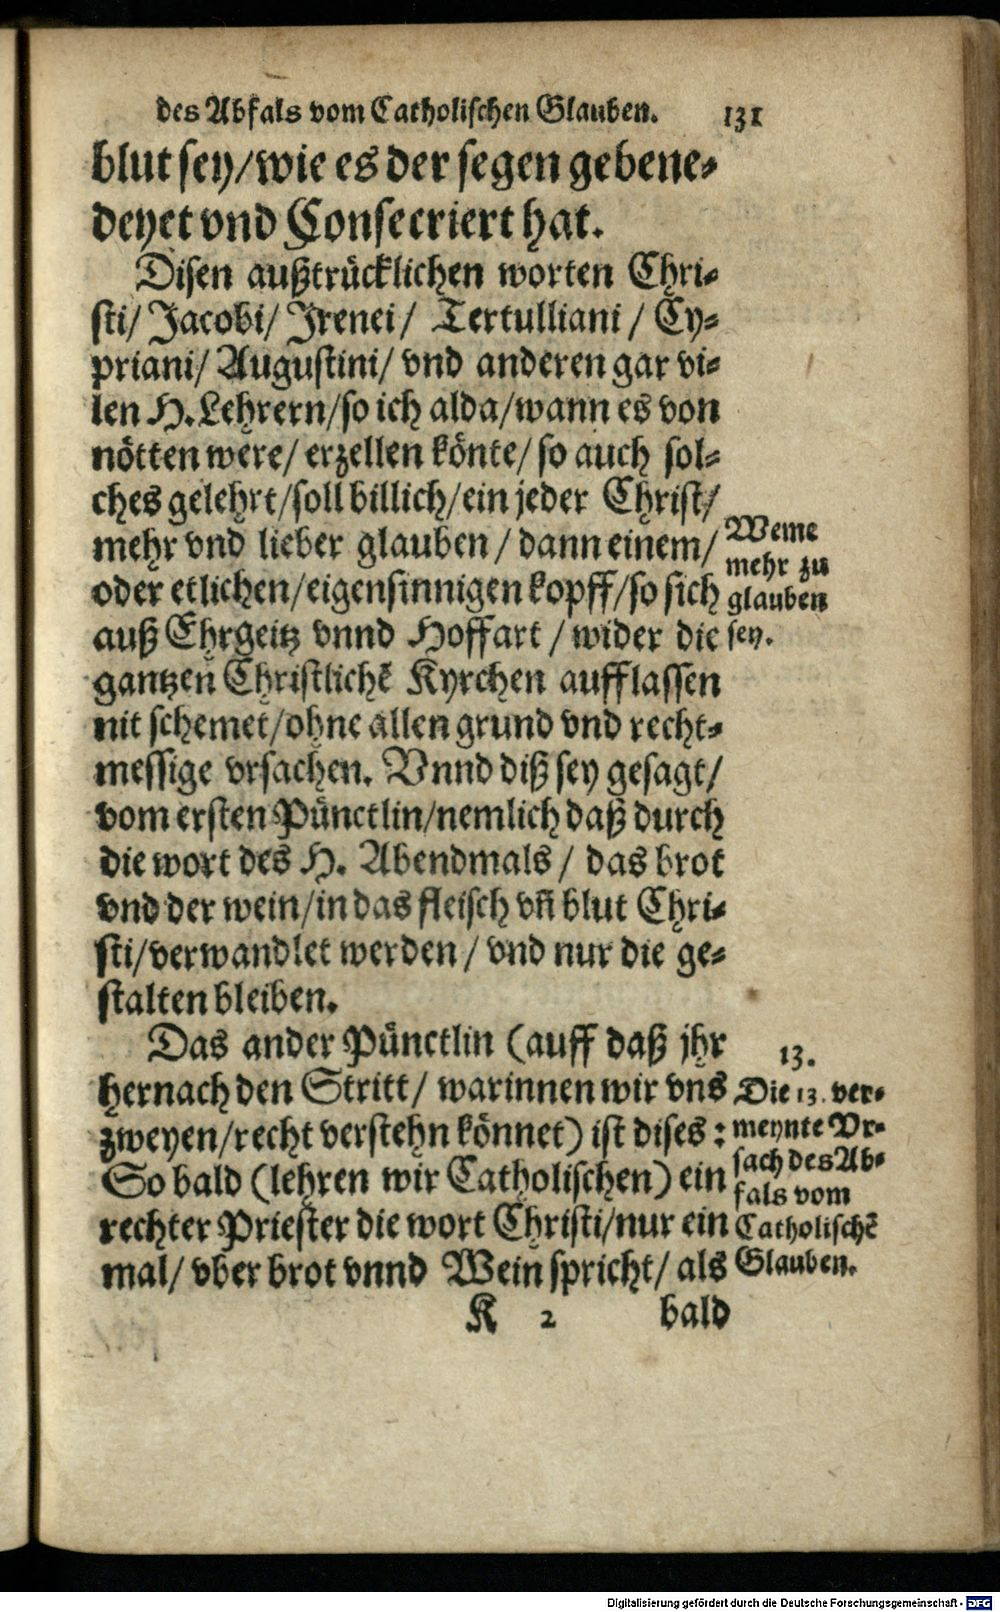 des Abfals vom Catholischen Glauben. 131
blut sey/wie es der segen gebene-
deyet vnd Consecriert hat.
Disen außtrücklichen worten Chri-
sti/ Jacobi/ Irenei/ Tertulliani / Cy-
priani/ Augustini/ vnd anderen gar vi-
len H. Lehrern/so ich alda/wann es von
nötten were/ erzellen könte/ so auch sol-
ches gelehrt/soll billich/ein jeder Christ/
mehr vnd lieber glauben / dann einem/
oder etlichen/eigensinnigen kopff/so sich
auß Ehrgeitz vnnd Hoffart / wider die
gantzen Christlichē Kyrchen aufflassen
nit schemet/ohne allen grund vnd recht-
messige vrsachen. Vnnd diß sey gesagt/
vom ersten Pünctlin/nemlich daß durch
die wort des H. Abendmals / das brot
vnd der wein/in das fleisch vñ blut Chri-
sti/verwandlet werden / vnd nur die ge-
stalten bleiben.
Weme
mehr zu
glauben
sey.
Das ander Pünctlin (auff daß jhr
hernach den Stritt/ warinnen wir vns
zweyen/recht verstehn könnet) ist dises :
So bald (lehren wir Catholischen) ein
rechter Priester die wort Christi/nur ein
mal/ vber brot vnnd Wein spricht/ als
13.
Die 13. ver-
meynte Vr-
sach des Ab-
fals vom
Catholischē
Glauben.
K 2 bald
Digitalisierung gefördert durch die Deutsche Forschungsgemeinschaft - DFG